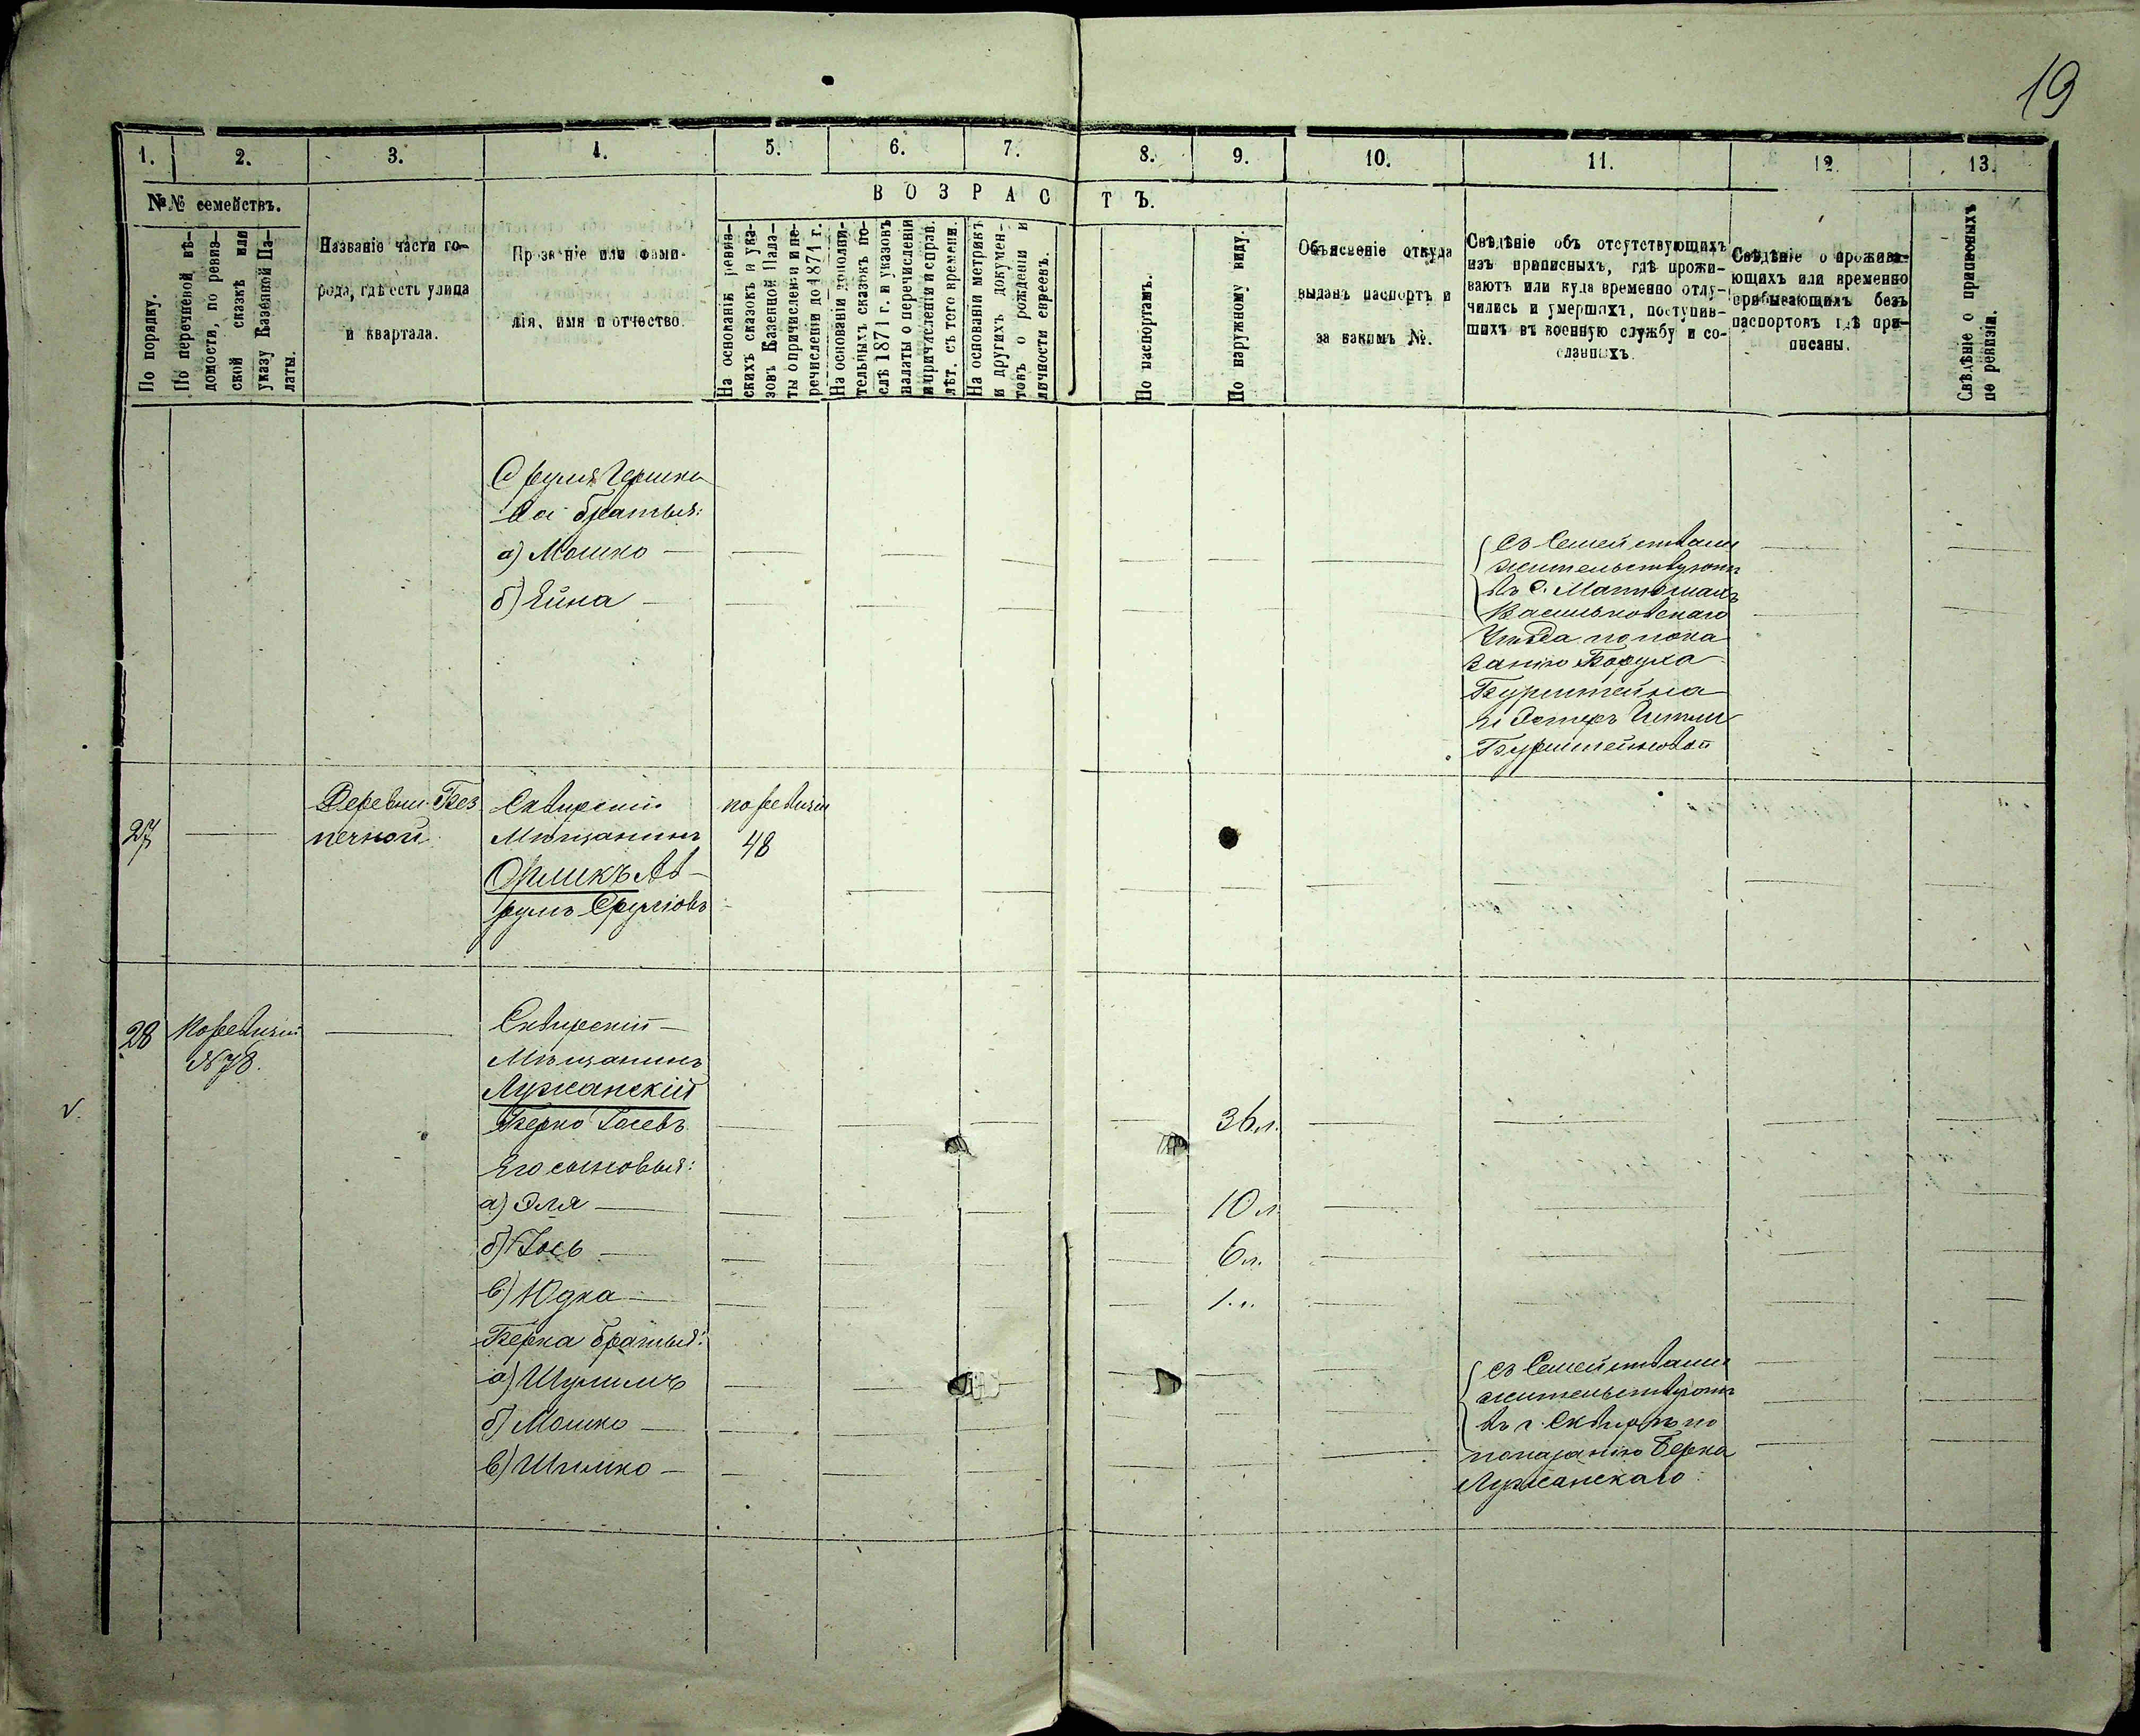 19
1. 2. 3. 4. 5. 6. 7. 8. 9. 10. 11. 12. 13.
№№ семействъ.
По порядку.
По перечневой вѣ-
домости, по ревиз-
ской сказкѣ или
указу Казенной Па-
латы.
Названіе части го-
рода, гдѣ есть улица
и квартала.
Прозваніе или фами-
лія, имя и отчество.
ВОЗРАСТЪ.
На основаніи ревиз-
скихъ сказокъ и ука-
зовъ Казенной Пала-
ты о причисленіи и пе-
речисленіи до 1871 г.
На основаніи дополни-
тельныхъ сказокъ по-
слѣ 1871 г. и указовъ
палаты о перечисленіи
и причисленіи и справ.
лѣт. съ того времени.
На основаніи метрикъ
и другихъ докумен-
товъ о рожденіи и
личности евреевъ.
По паспортамъ.
По наружному виду.
Объясненіе откуда
выданъ паспортъ и
за какимъ №.
Свѣдѣніе объ отсутствующихъ
изъ приписныхъ, гдѣ прожи-
ваютъ или куда временно отлу-
чились и умершихъ, поступив-
шихъ въ военную службу и со-
сланныхъ.
Свѣдѣніе о прожива-
ющихъ или временно
пребывающихъ безъ
паспортовъ гдѣ при-
писаны.
Свѣдѣніе о приписныхъ
по ревизіи.
Сруля Гершка
братья:
а) Мошко
б) Ейна
съ Семействами
жительствуютъ
въ с.
Васильковскаго
Уѣзда по пока
занію Боруха
Бурштейна
и Эстеръ
Бурштейновой
27
Деревни Без
печной
Сквирскій
Мѣщанинъ
Орликъ Ав-
румъ Сруліовъ
по ревизіи
48
28
По ревизіи
№ 78.
Сквирскій
Мѣщанинъ
Лужанскій
Берко Іосевъ
36 л.
Его сыновья:
а) Эля
10 л
б) Іось
6 л.
в) Юдка
1 л.
Берка братья:
а) Шулимъ
б) Мошко
в) Шлиомко
съ Семействами
жительствуютъ
въ г. Сквирѣ по
показанію Берка
Лужанскаго